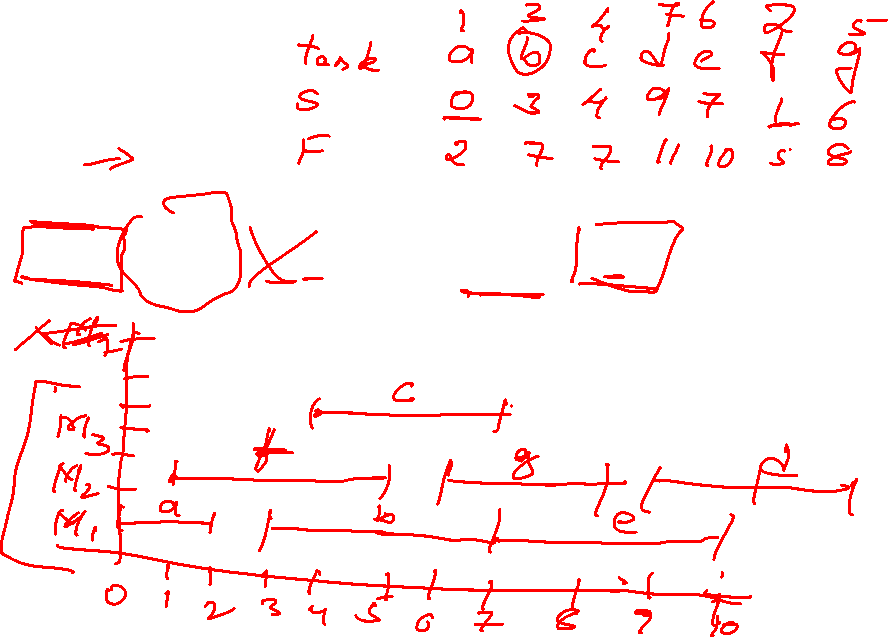 1 3 4 7 6 2 5
task a b c d e f g
S 0 3 4 9 7 1 6
F 2 7 7 11 10 5 8
c
M3
f g d
M2
a b e
M1
0 1 2 3 4 5 6 7 8 9 10